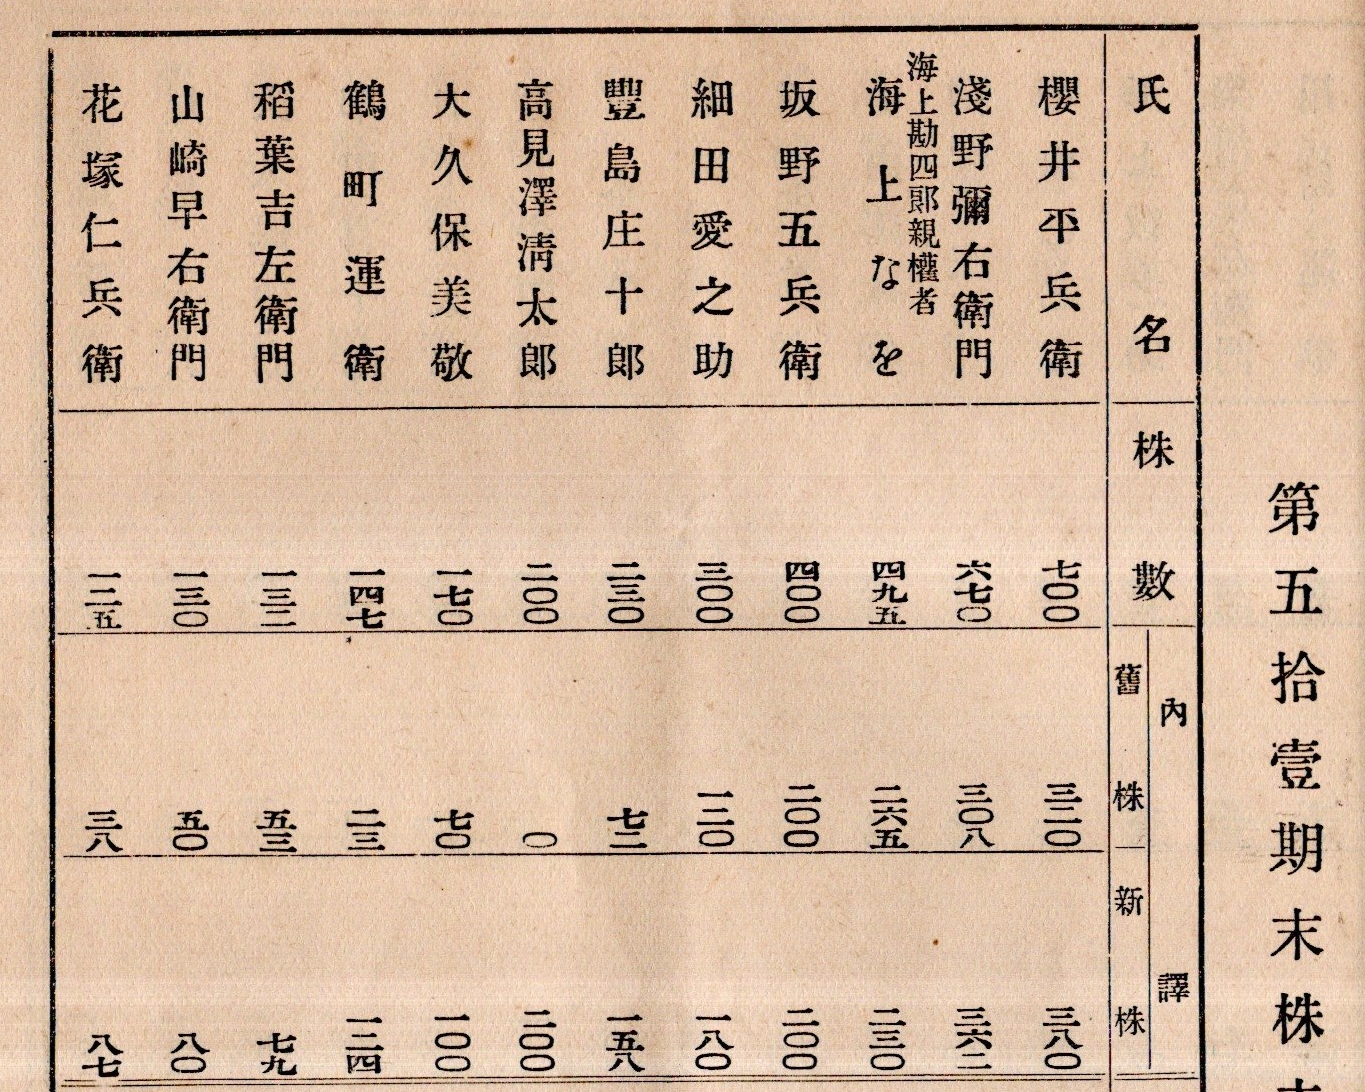 第五拾壹期末株
氏名 株數 內譯 舊株 新株
櫻井平兵衛 七〇〇 三二〇 三八〇
淺野彌右衛門 六七〇 三〇八 三六二
海上勘四郎親權者
海上なを 四九五 二六五 二三〇
坂野五兵衛 四〇〇 二〇〇 二〇〇
細田愛之助 三〇〇 一二〇 一八〇
豐島庄十郎 二三〇 七二 一五八
高見澤淸太郎 二〇〇 〇 二〇〇
大久保美敬 一七〇 七〇 一〇〇
鶴町運衛 一四七 二三 一二四
稻葉吉左衛門 一三二 五三 七九
山崎早右衛門 一三〇 五〇 八〇
花塚仁兵衛 一二五 三八 八七